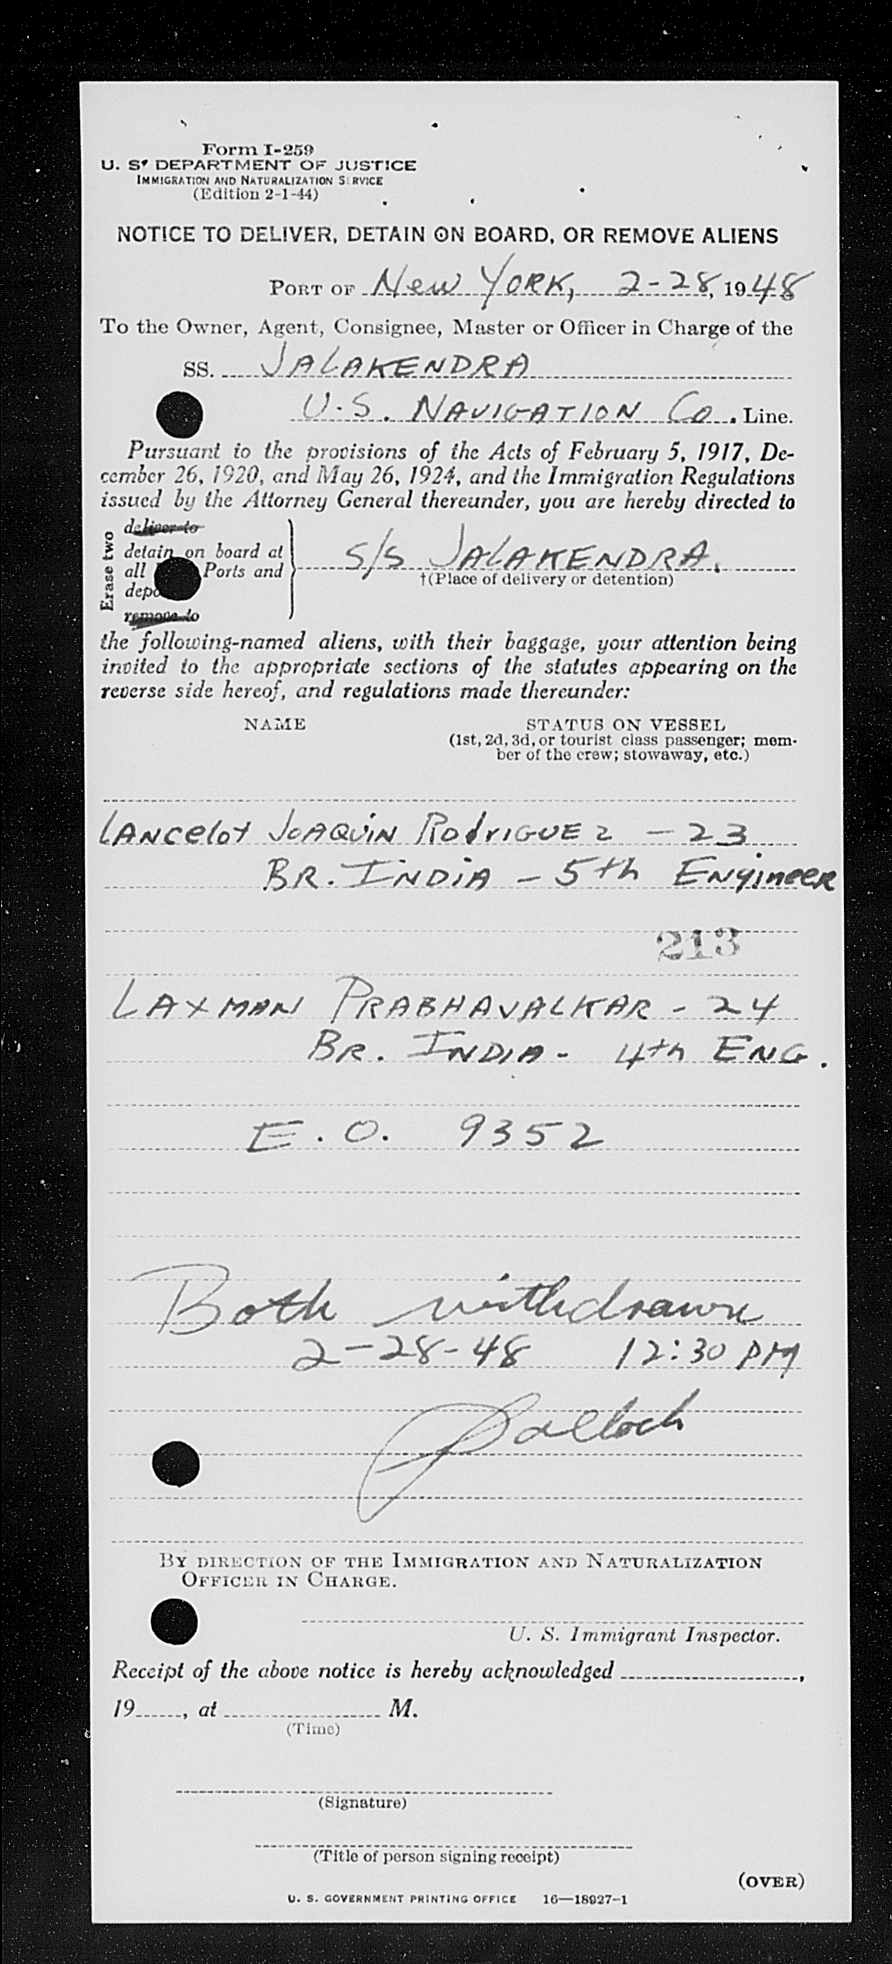 Form I-259
U. S. DEPARTMENT OF JUSTICE
IMMIGRATION AND NATURALIZATION SERVICE
(Edition 2-1-44)
NOTICE TO DELIVER, DETAIN ON BOARD, OR REMOVE ALIENS
PORT OF New YORK, 2-28, 1948
To the Owner, Agent, Consignee, Master or Officer in Charge of the
SS. JALAKENDRA
U.S. NAVIGATION Co. Line.
Pursuant to the provisions of the Acts of February 5, 1917, De-
cember 26, 1920, and May 26, 1924, and the Immigration Regulations
issued by the Attorney General thereunder, you are hereby directed to
Erase two
deliver to
detain on board at
all Ports and
remove to
S/S JALAKENDRA.
†(Place of delivery or detention)
the following-named aliens, with their baggage, your attention being
invited to the appropriate sections of the statutes appearing on the
reverse side hereof, and regulations made thereunder:
NAME STATUS ON VESSEL
(1st, 2d, 3d, or tourist class passenger; mem-
ber of the crew; stowaway, etc.)
LANcelot JOAQUIN RodrIGUEz - 23
BR. INDIA - 5th ENgineeR
213
LAXMAN PRABHAVALKAR - 24
BR. INDIA - 4th ENG.
E.O. 9352
Both withdrawn
2-28-48 12:30 PM
BY DIRECTION OF THE IMMIGRATION AND NATURALIZATION
OFFICER IN CHARGE.
U. S. Immigrant Inspector.
Receipt of the above notice is hereby acknowledged ,
19 , at M.
(Time)
(Signature)
(Title of person signing receipt)
(OVER)
U. S. GOVERNMENT PRINTING OFFICE 16—18927-1